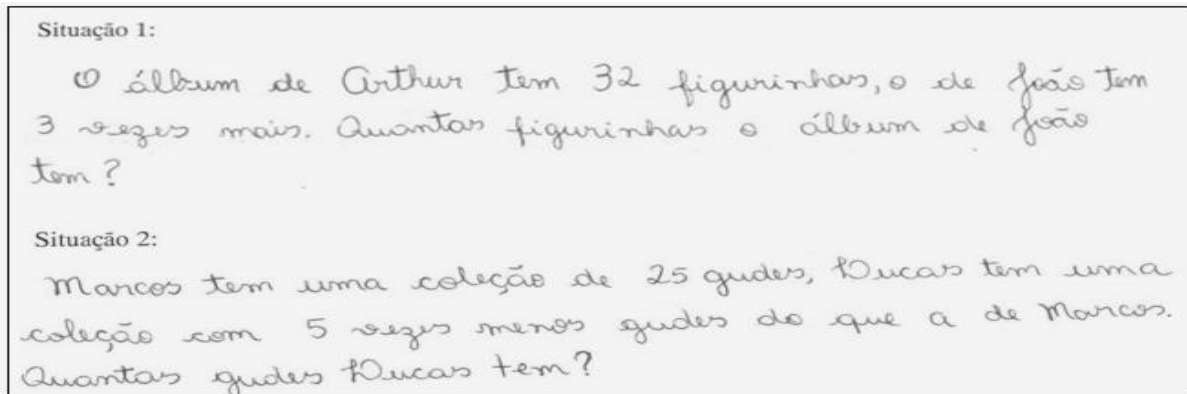 Situação 1:
O álbum de Arthur tem 32 figurinhas, o de João tem
3 vezes mais. Quantas figurinhas o álbum de João
tem?
Situação 2:
Marcos tem uma coleção de 25 gudes, Lucas tem uma
coleção com 5 vezes menos gudes do que a de Marcos.
Quantas gudes Lucas tem?